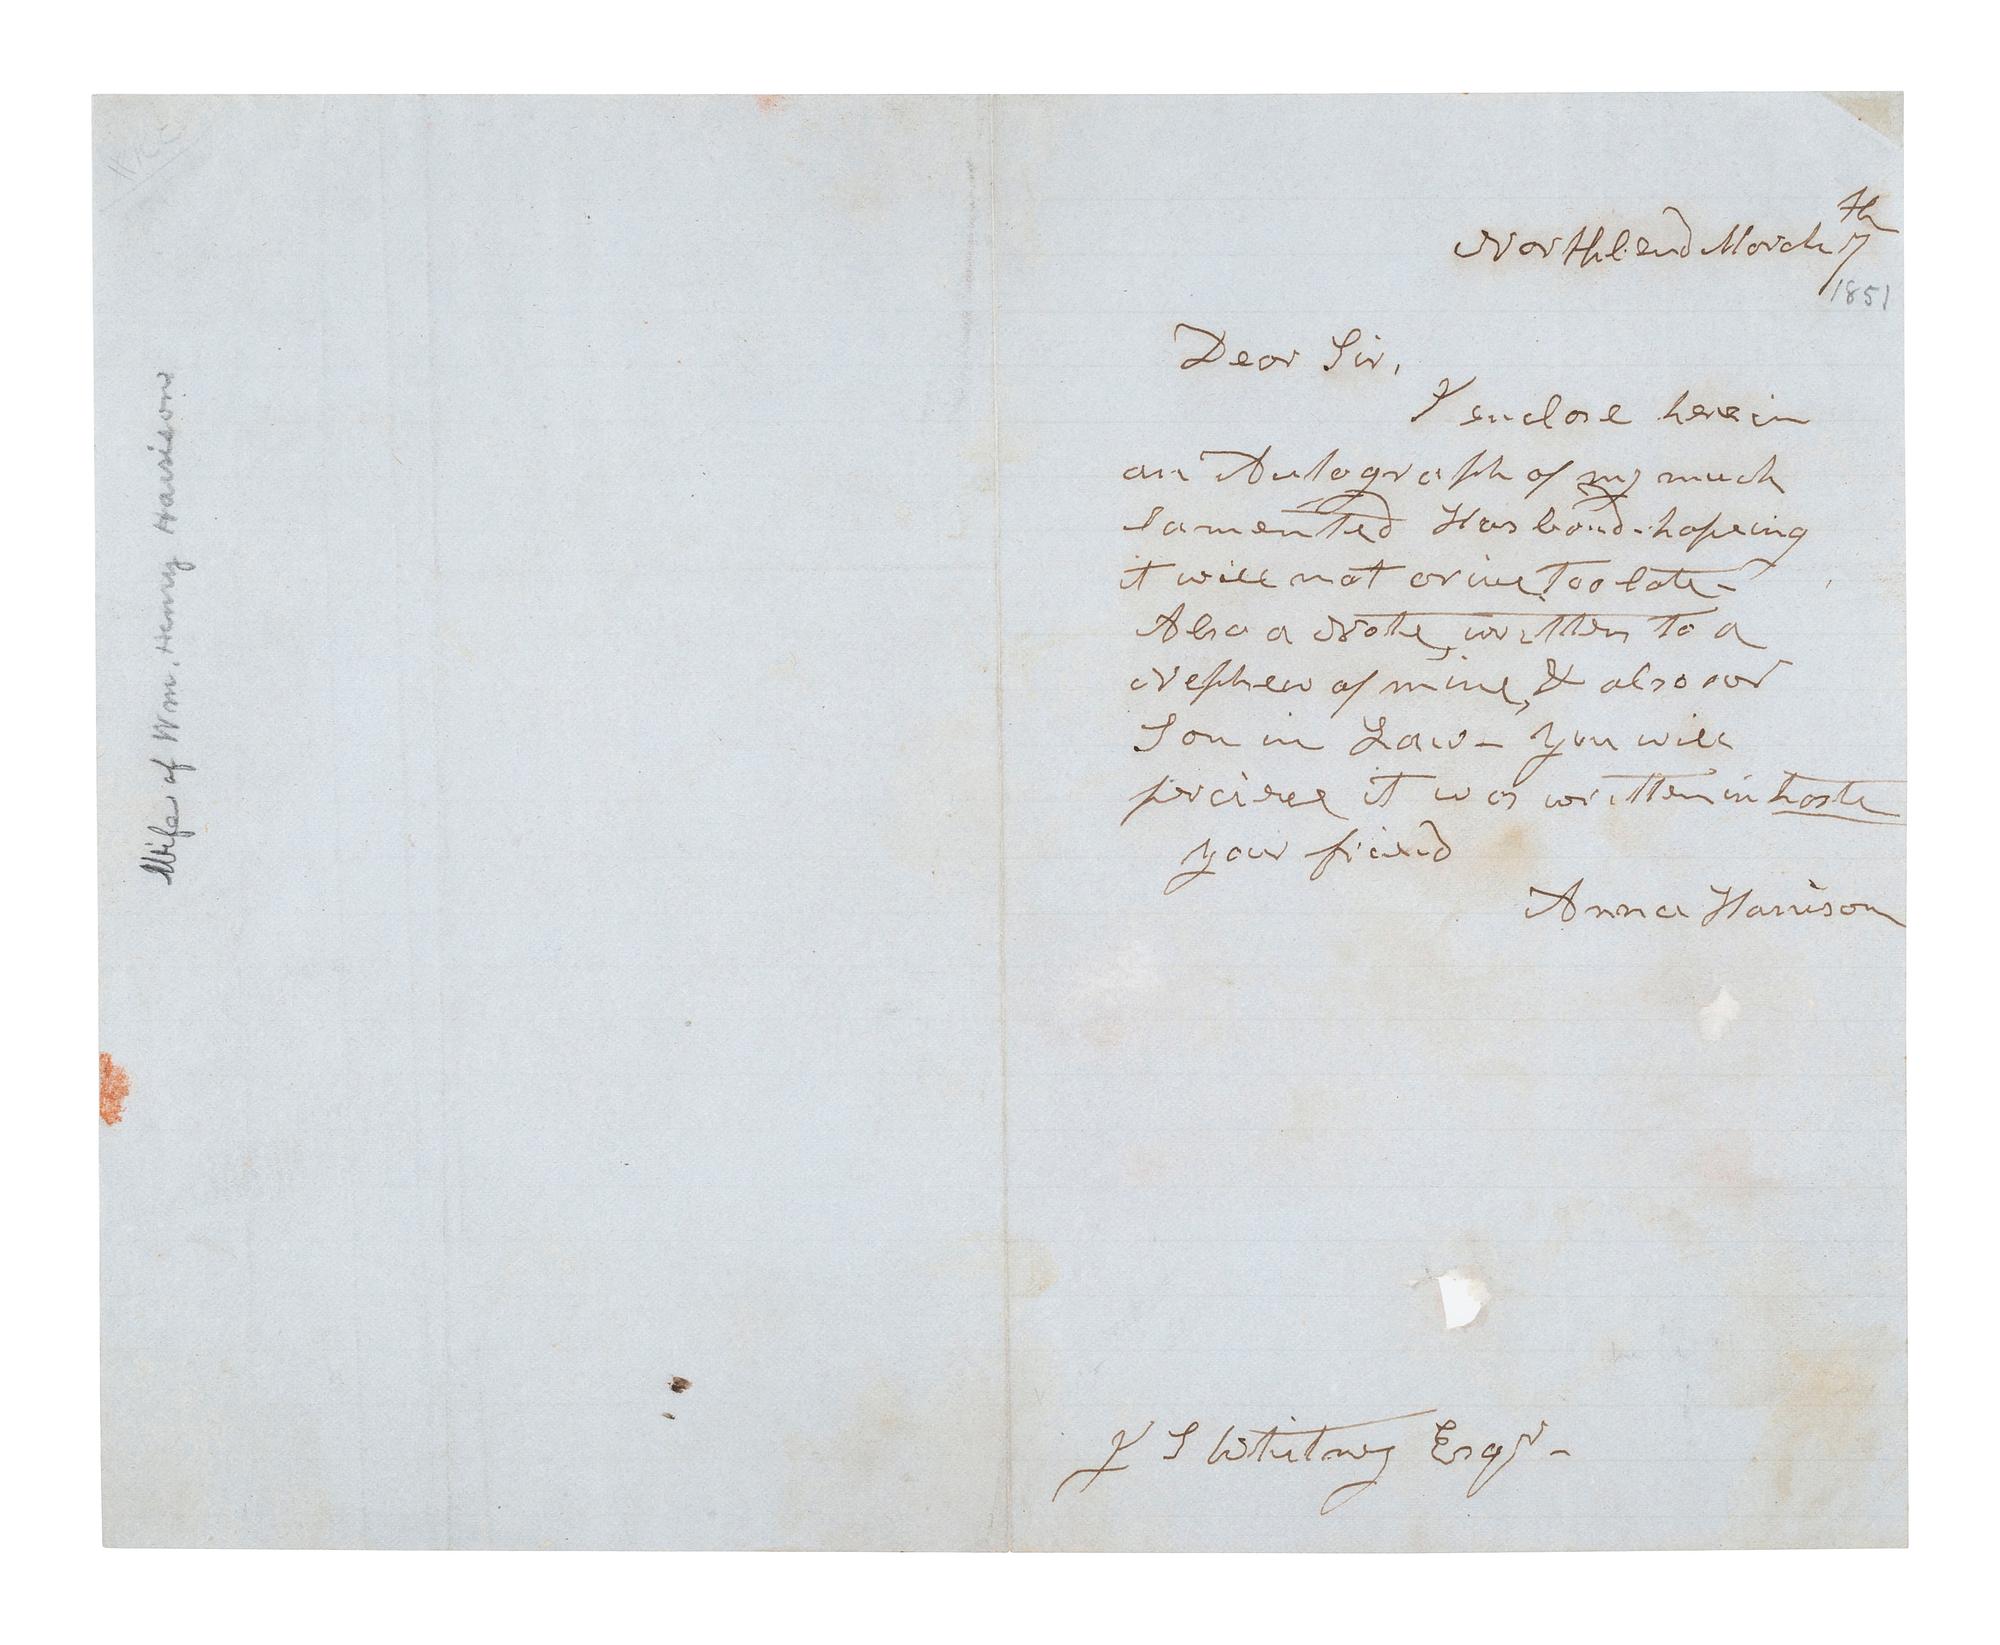 Wife of Wm. Henry Harrison
North bend March 7th
1851
Dear Sir,
I enclose herein
an Autograph of my much
lamented Husband - hopeing
it will not arive too late -
Also a Note written to a
Nephew of mine, & also our
Son in Law - you will
percieve it was written in haste
your friend
Anna Harrison
J S Whitney Esqr -